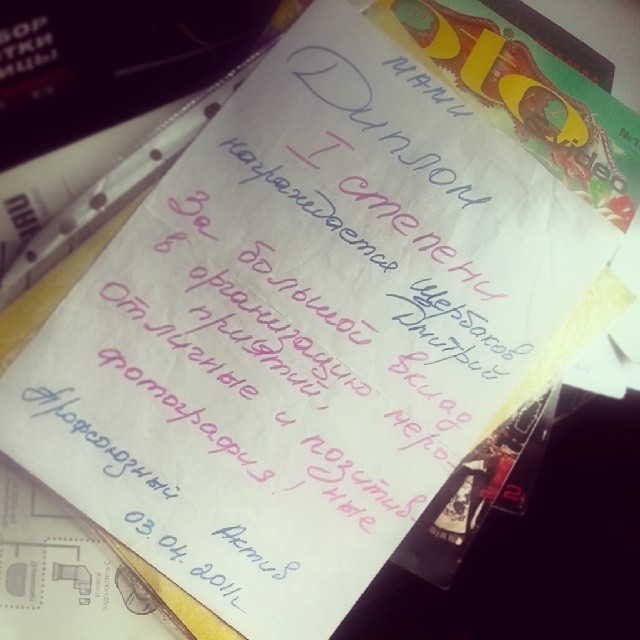 мами
Диплом
I степени
награждается Щербаков
Дмитрий
За большой вклад
в организацию меро-
приятий,
Отличные и позитив-
ные
фотография!
Профсоюзный Актив
03.04.2011г.
№1
video